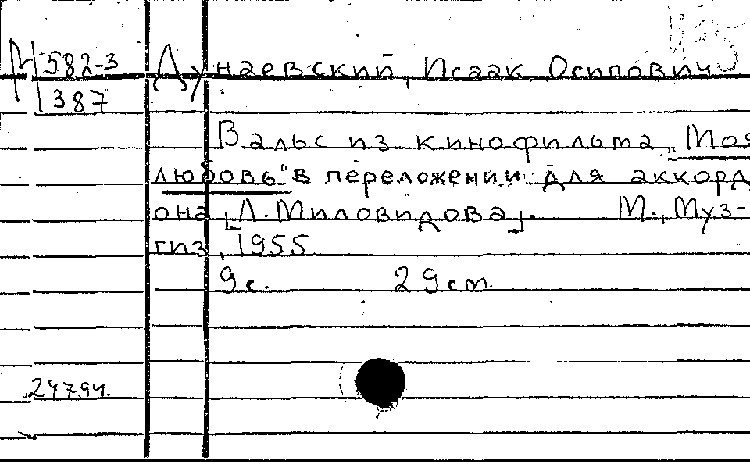 М 582-3
387
Дунаевский, Исаак Осипович
Вальс из кинофильма „Моя
любовь" в переложении для аккорд
она [Л. Миловидова]. М., Муз-
гиз, 1955
9 с. 29 см.
24794